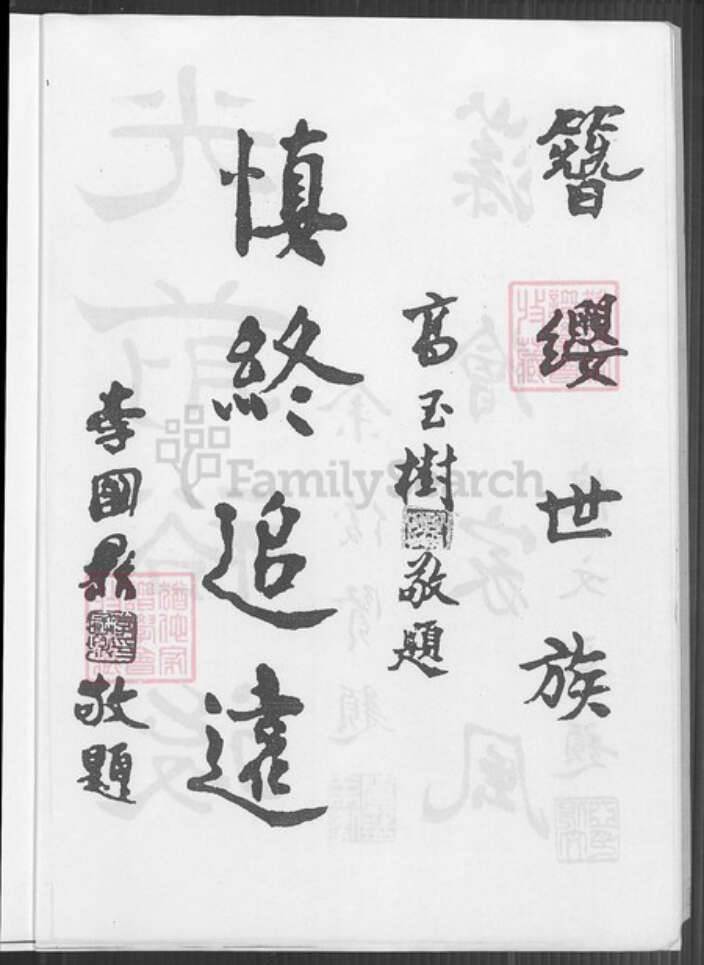 簪纓世族
高玉樹敬題
慎終追遠
李國鼎敬題
FamilySearch